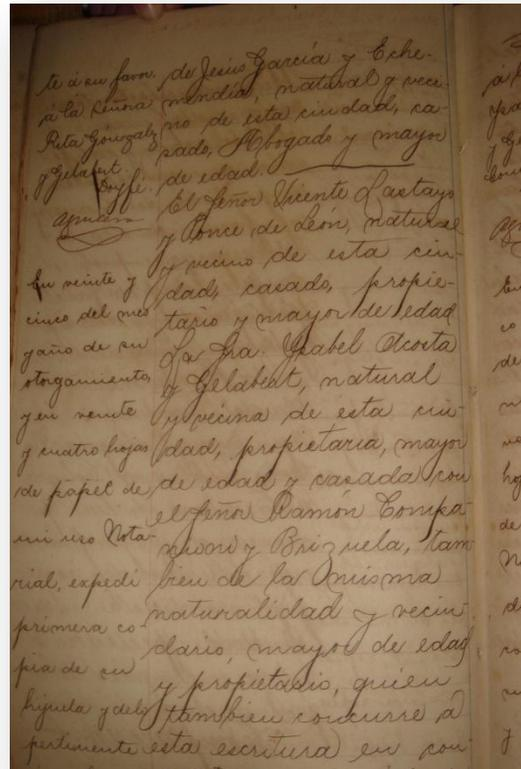 te á su favor.
á la señora
Rita Gonzalz
y Gelabert.
Doy fé.
En veinte y
cinco del mes
y año de su
otorgamiento,
y en veinte
y cuatro hojas
de papel de
mi uso Nota-
rial, expedí
primera co-
pia de su
hijuela y delo
pertinente
de Jesús García y Eche-
mendía, natural y veci-
no de esta ciudad, ca-
sado, Abogado y mayor
de edad.
El Señor Vicente Lastayo
y Ponce de León, natural
y vecino de esta ciu-
dad, casado, propie-
tario y mayor de edad
La Sra. Ysabel Acosta
y Gelabert, natural
y vecina de esta ciu-
dad, propietaria, mayor
de edad y casada con
el Señor Ramón Compa-
nioni y Brizuela, tam
bien de la misma
naturalidad y vecin-
dario, mayor de edad
y propietario, quien
tambien concurre á
esta escritura en con-